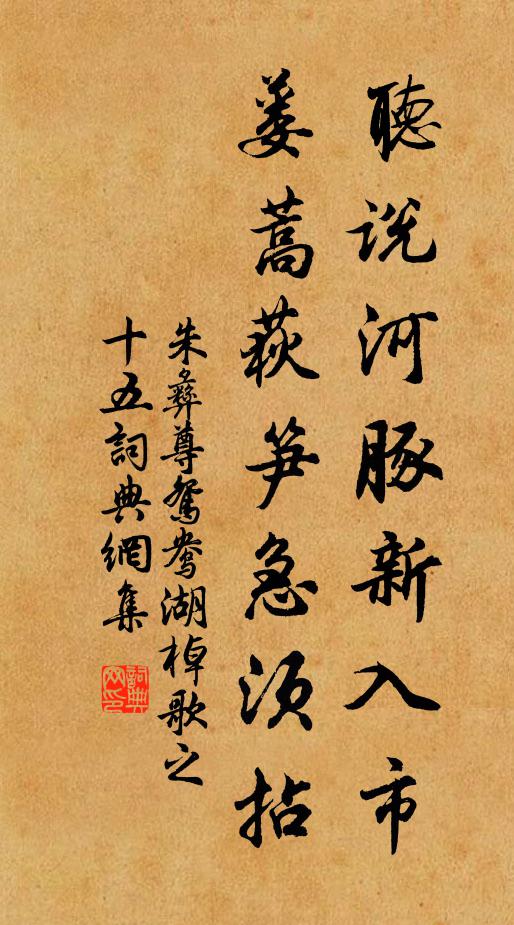 聽說河豚新入市
蔞蒿荻笋急須拈
朱彝尊鴛鴦湖棹歌之
十五詞典網集
詞典网印